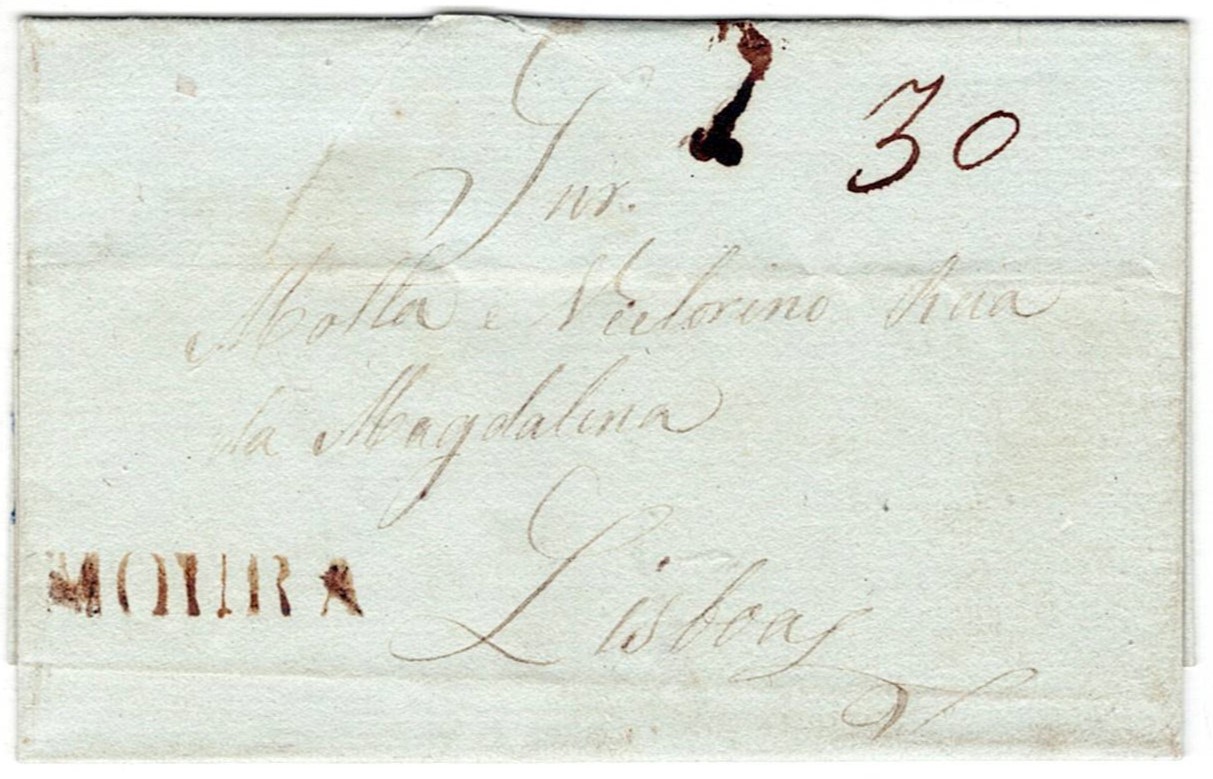 30
Snr.
Motta e Victorino Rua
da Magdalena
Lisboa
MOURA